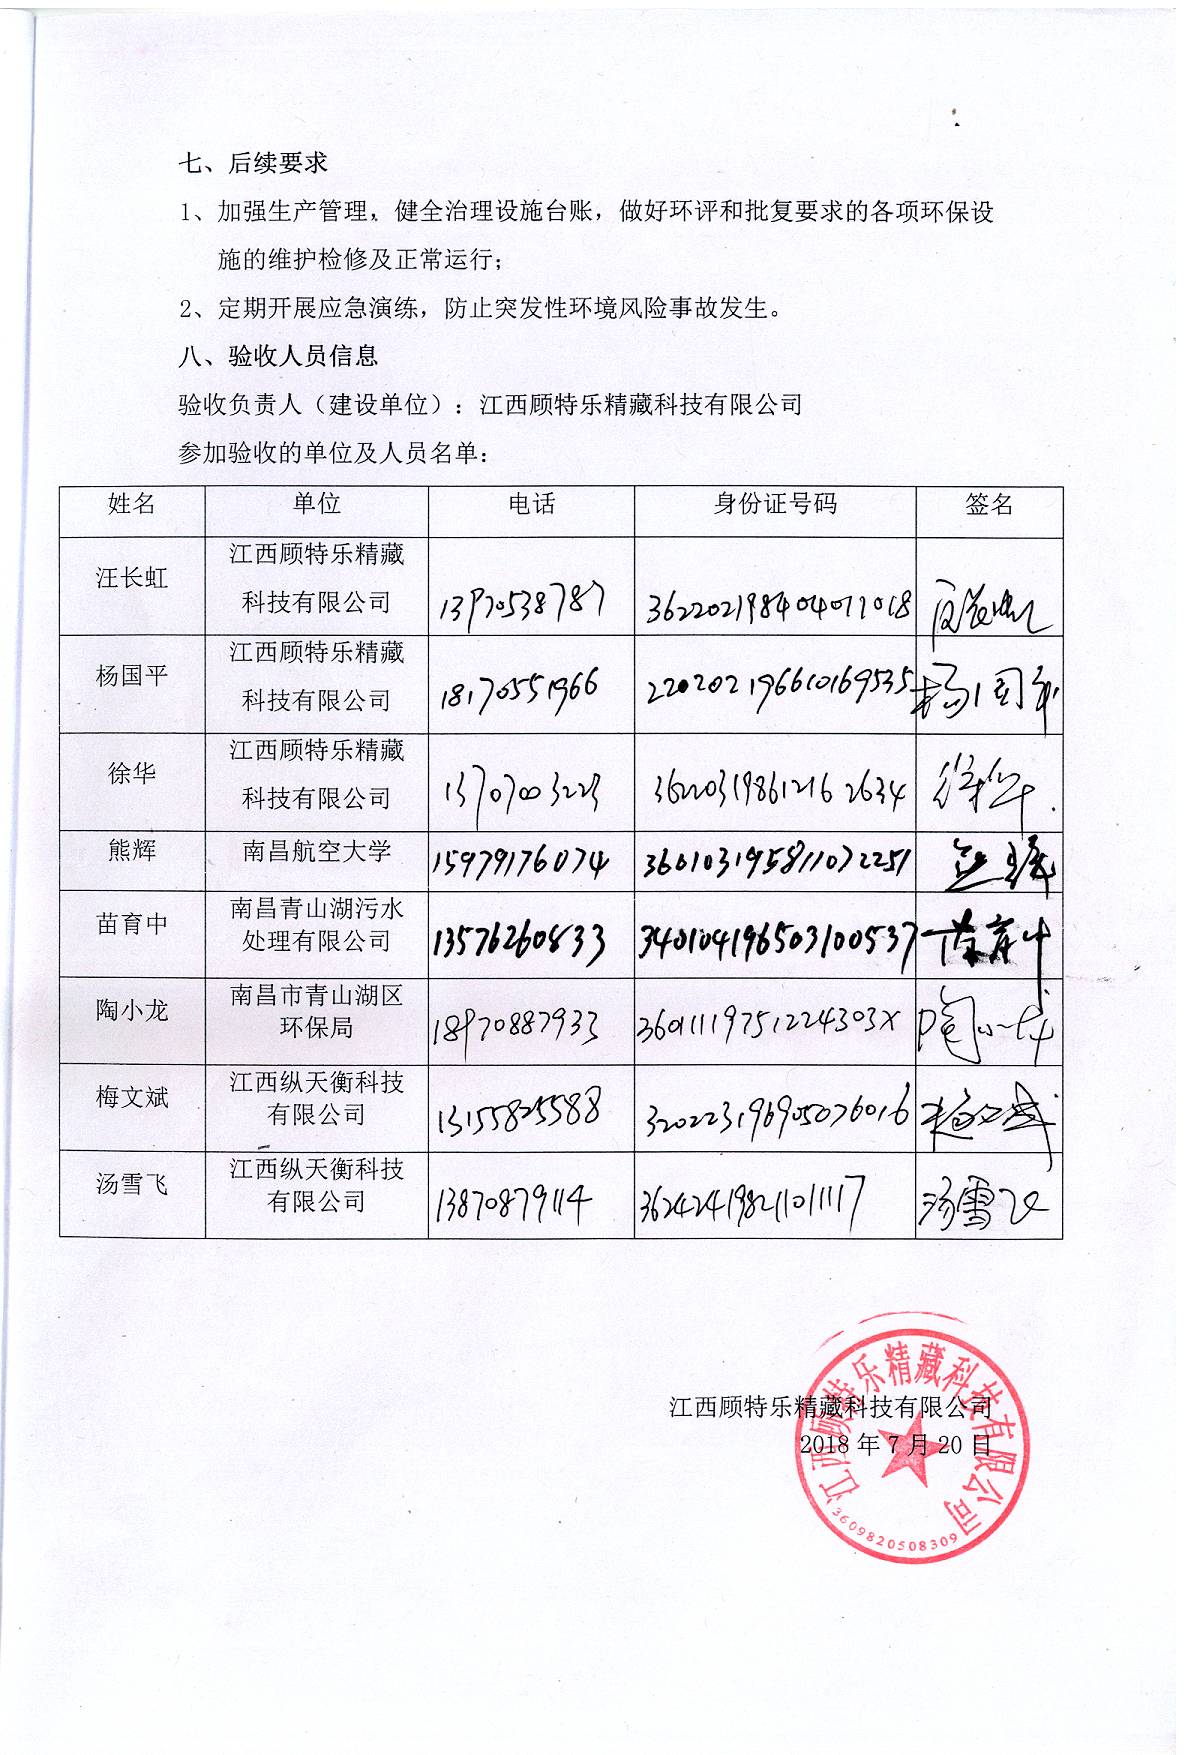 七、后续要求
1、加强生产管理，健全治理设施台账，做好环评和批复要求的各项环保设
施的维护检修及正常运行；
2、定期开展应急演练，防止突发性环境风险事故发生。
八、验收人员信息
验收负责人（建设单位）：江西顾特乐精藏科技有限公司
参加验收的单位及人员名单：
姓名 单位 电话 身份证号码 签名
汪长虹 江西顾特乐精藏
科技有限公司 13970538787 362202198404011018
杨国平 江西顾特乐精藏
科技有限公司 18170551966 220202196610169535 杨国平
徐华 江西顾特乐精藏
科技有限公司 13707003223 362203198612162634 徐华
熊辉 南昌航空大学 15979176074 360103195811072251
苗育中 南昌青山湖污水
处理有限公司 13576260833 340104196503100537 苗育中
陶小龙 南昌市青山湖区
环保局 18970887933 36011119751224303X 陶小龙
梅文斌 江西纵天衡科技
有限公司 13155825588 320223196905076016 梅文斌
汤雪飞 江西纵天衡科技
有限公司 13870879114 362424198211011117 汤雪飞
江西顾特乐精藏科技有限公司
2018 年 7 月 20 日
江西顾特乐精藏科技有限公司
3609820508309